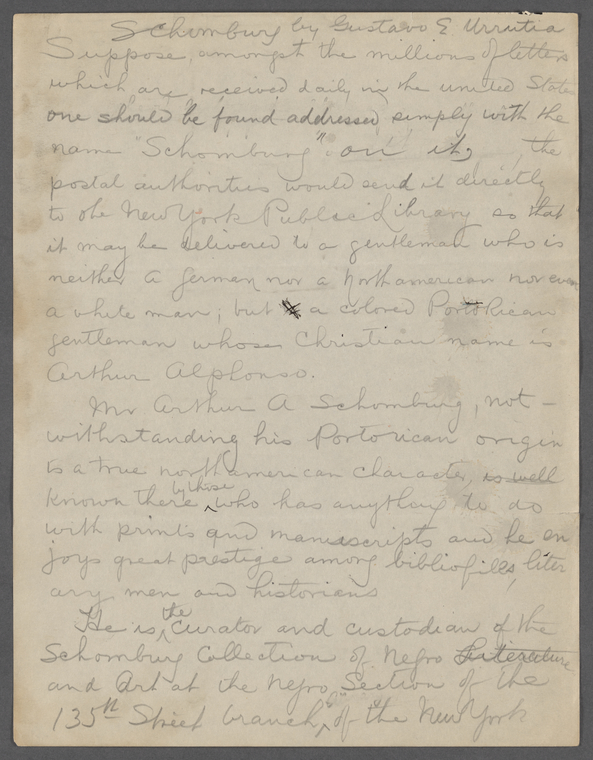 Schomburg by Gustavo E Urrutia
Suppose, amongst the millions of letters
which are received daily in the united States
one should be found addressed simply with the
name "Schomburg" on it, the
postal authorities would send it directly
to the New York Public Library so that
it may be delivered to a gentleman who is
neither a German nor a North american nor even
a white man; but a colored PortoRican
gentleman whose Christian name is
Arthur Alphonso.
Mr Arthur A Schomburg, not-
withstanding his Portorican origin
is a true north american character, is well
known there by those who has anything to do
with prints and manuscripts and he en
joys great prestige among bibliofiles, liter
ary men and historians
He is the Curator and custodian of the
Schomburg Collection of Negro Literature
and Art at the Negro Section of the
135th Street branch, of the New York